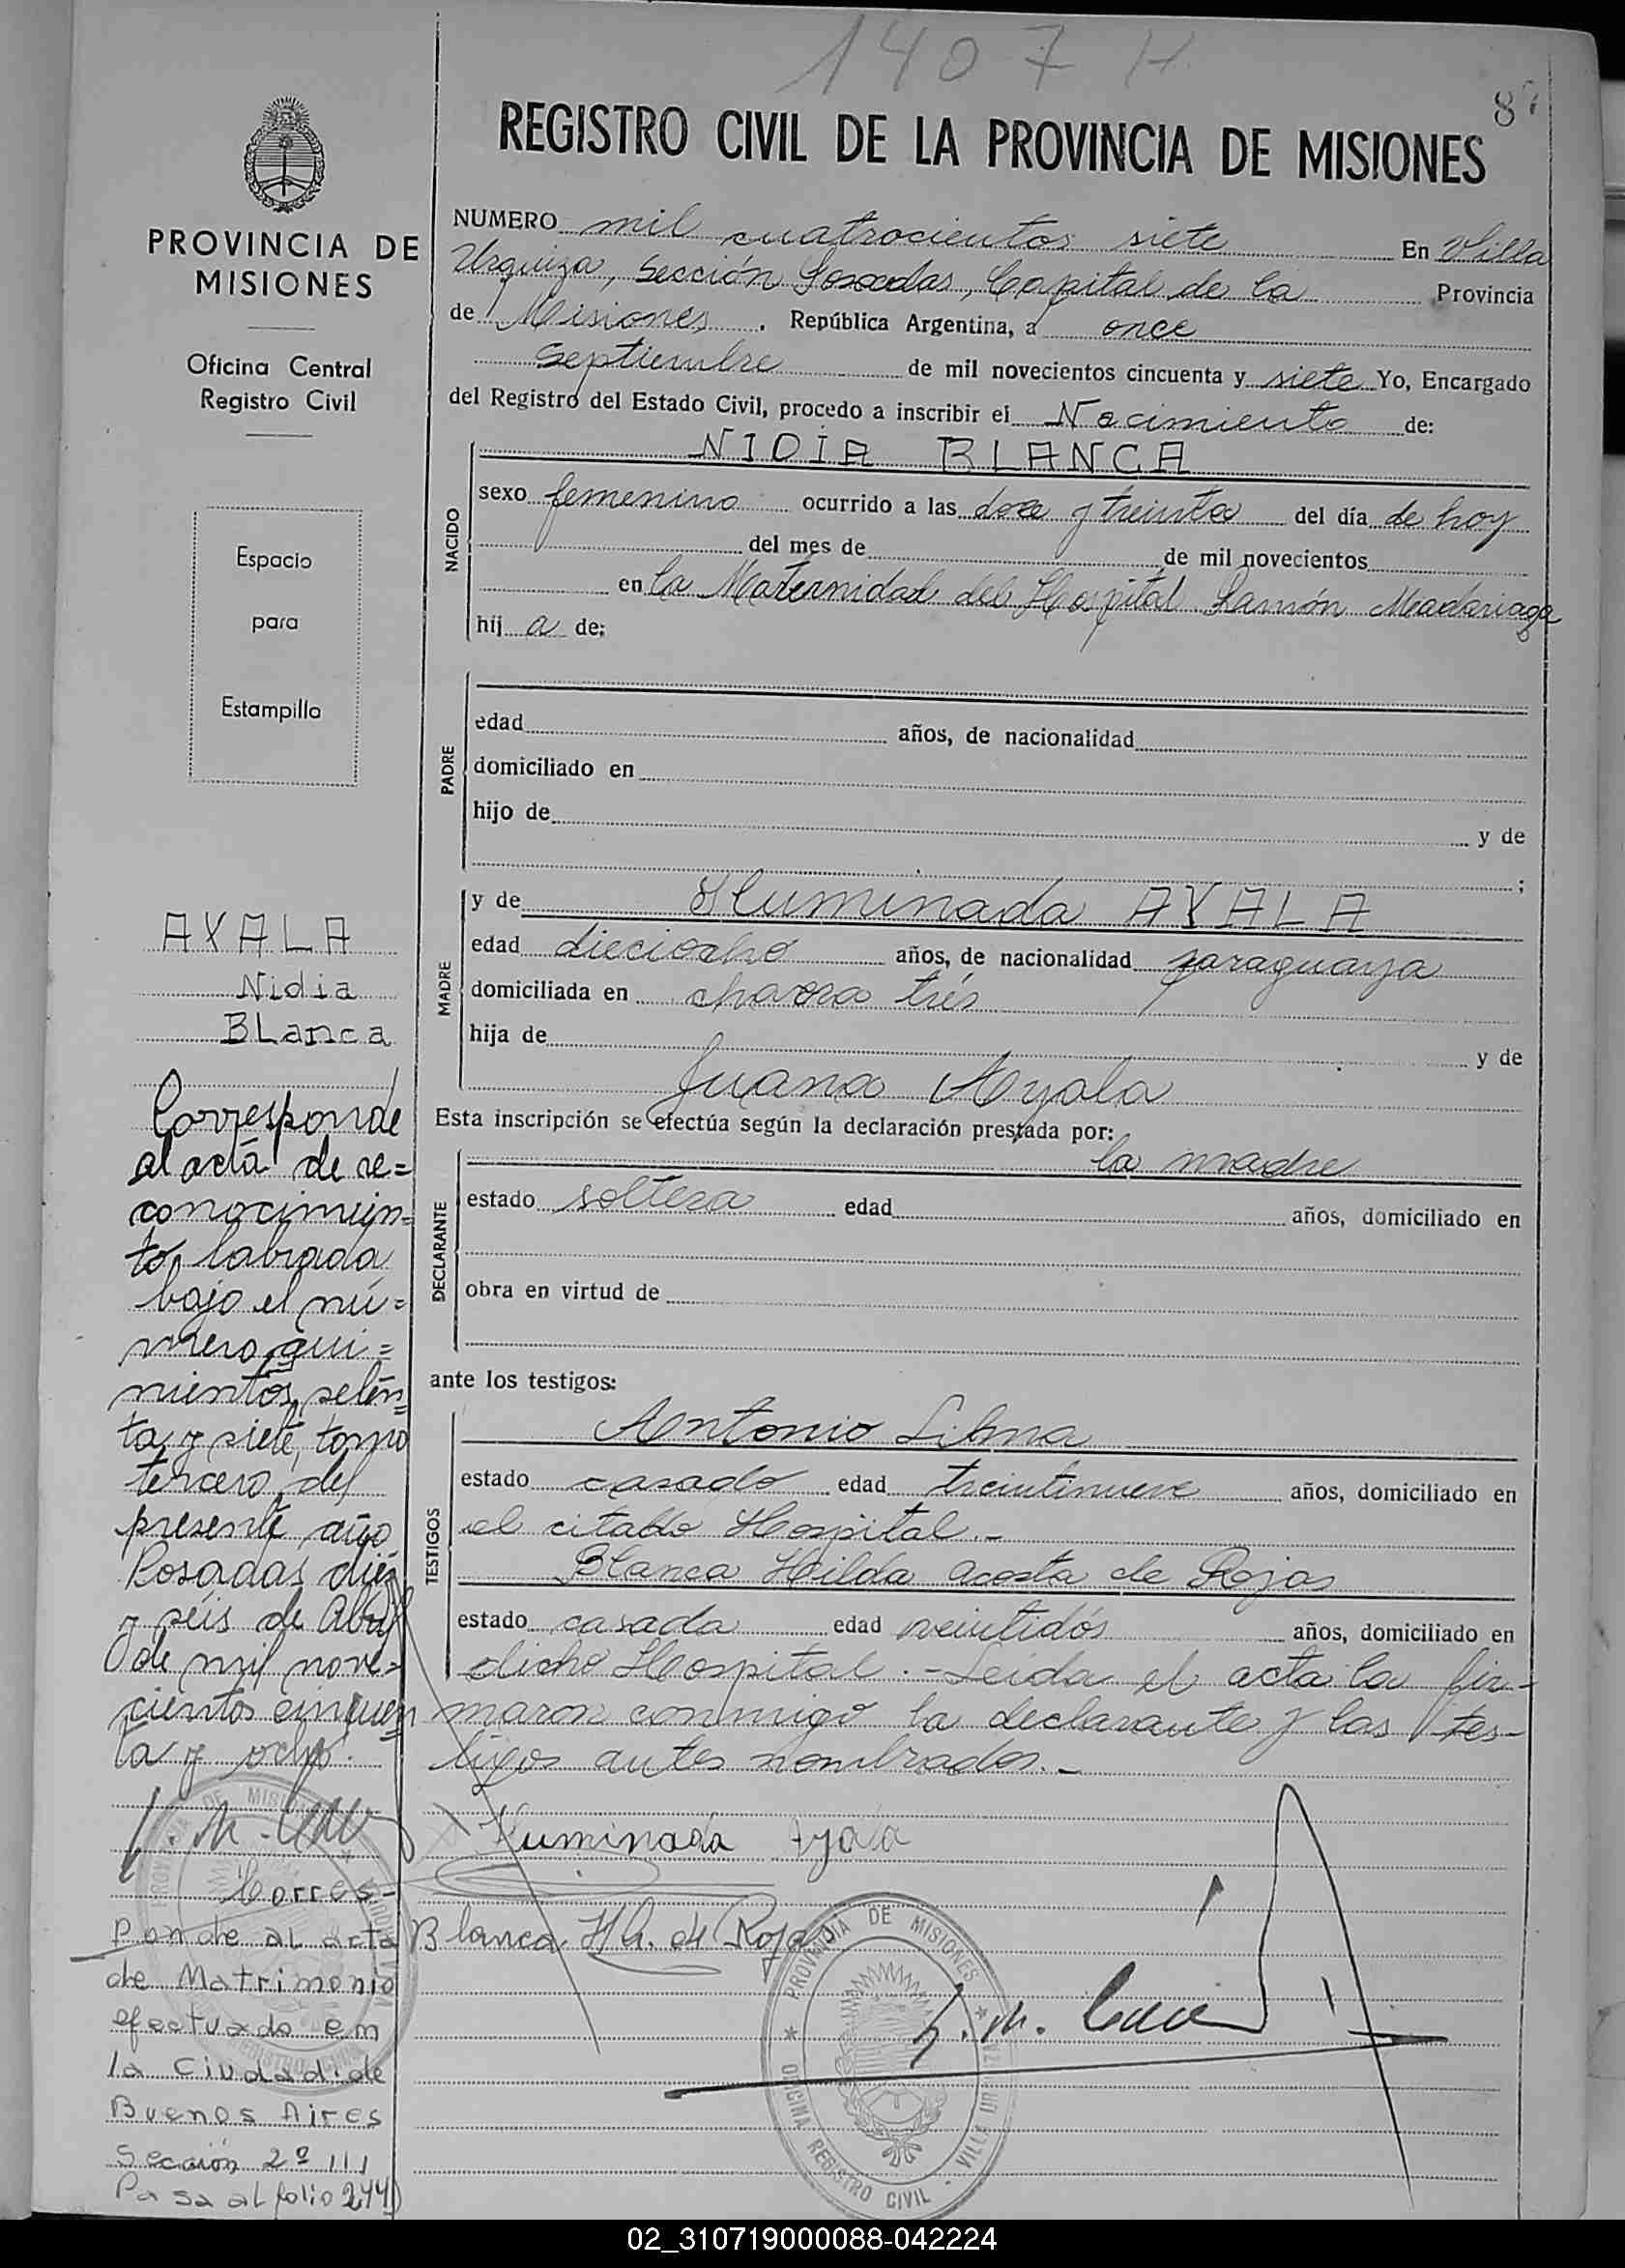 1407 H
REGISTRO CIVIL DE LA PROVINCIA DE MISIONES
PROVINCIA DE
MISIONES
Oficina Central
Registro Civil
Espacio
para
Estampilla
NUMERO mil cuatrocientos siete En Villa
Urquiza, Sección Posadas, Capital de la Provincia
de Misiones. República Argentina, a once
Septiembre de mil novecientos cincuenta y siete Yo, Encargado
del Registro del Estado Civil, procedo a inscribir el Nacimiento de:
NIDIA BLANCA
NACIDO
sexo femenino ocurrido a las doce y treinta del día de hoy
del mes de de mil novecientos
en la Maternidad del Hospital Ramón Madariaga
hij a de:
PADRE
edad años, de nacionalidad
domiciliado en
hijo de y de
;
MADRE
y de Iluminada AYALA
edad dieciocho años, de nacionalidad paraguaya
domiciliada en chacra trés
hija de y de
Juana Ayala
Esta inscripción se efectúa según la declaración prestada por:
DECLARANTE
la madre
estado soltera edad años, domiciliado en
obra en virtud de
ante los testigos:
TESTIGOS
Antonio
estado casado edad treintinueve años, domiciliado en
el citado Hospital.-
Blanca Hilda Acosta de Rojas
estado casada edad veintidós años, domiciliado en
dicho Hospital.- Leida el acta la fir-
maron conmigo la declarante y los tes-
tigos antes nombrados.-
Iluminada Ayala
Blanca H A. de Rojas
PROVINCIA DE MISIONES
OFICINA REGISTRO CIVIL - VILLA URQUIZA
AYALA
Nidia
BLanca
Corresponde
al acta de re=
conocimien=
to, labrada
bajo el nú=
mero qui=
nientos, seten=
ta y siete, tomo
tercero del
presente año
Posadas, diez
y seis de Abril
de mil nove=
cientos cincuen=
ta y ocho.
Corres-
ponde al acta
de Matrimonio
efectuado en
la Ciudad de
Buenos Aires
Sección 2º
Pasa al folio 244
02_310719000088-042224